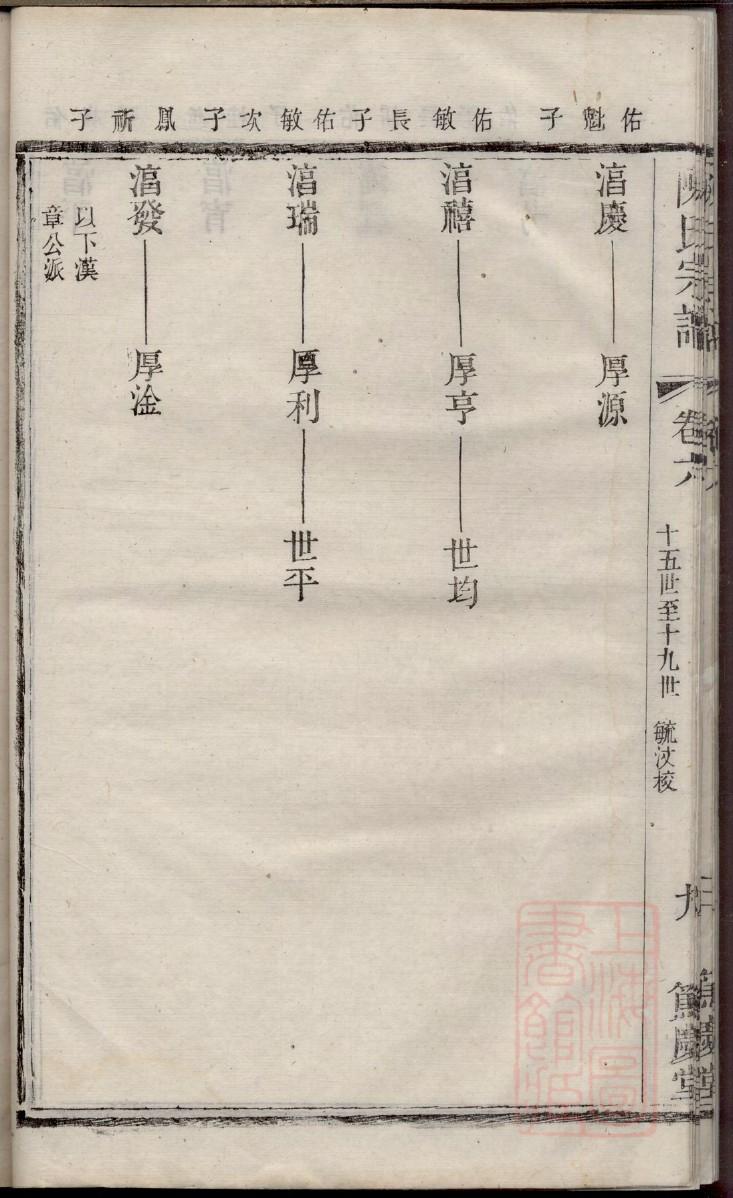 佑魁子
佑敏長子
佑敏次子
鳳祈子
氏宗譜
卷六
十五世至十九世 毓汶校
九
篤慶堂
湻慶 厚源
湻禧 厚亨 世均
湻瑞 厚利 世平
湻發 厚淦
以下漢
章公派
上海圖
書館藏